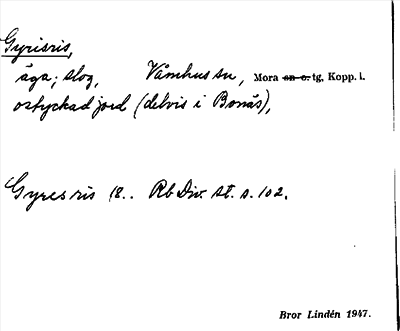 Gyrisris,
äga; slog, Våmhus sn, Mora sn o. tg, Kopp. l.
ostyckad jord (delvis i Bonäs),
Gyres ris 18.. Rb Div. st. s. 102.
Bror Lindén 1947.